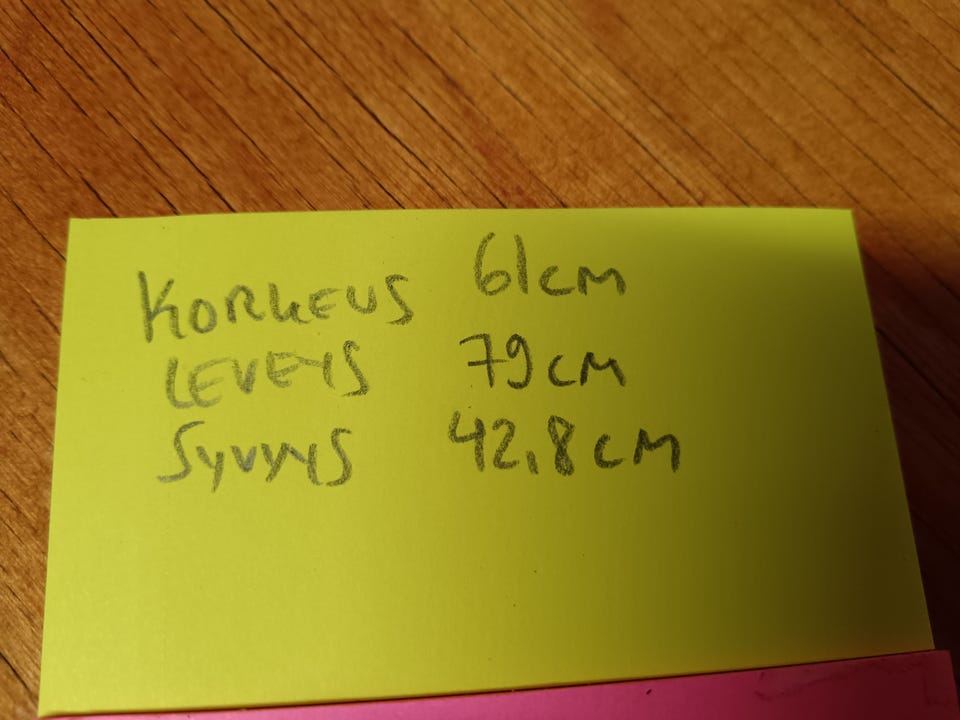 KORKEUS 61cm
LEVEYS 79cm
SYVYYS 42,8cm